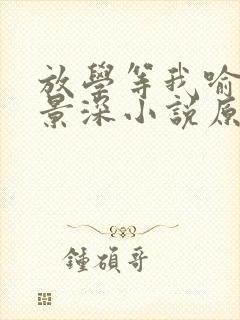 放學等我喻
景深小説原
鍾碩哥